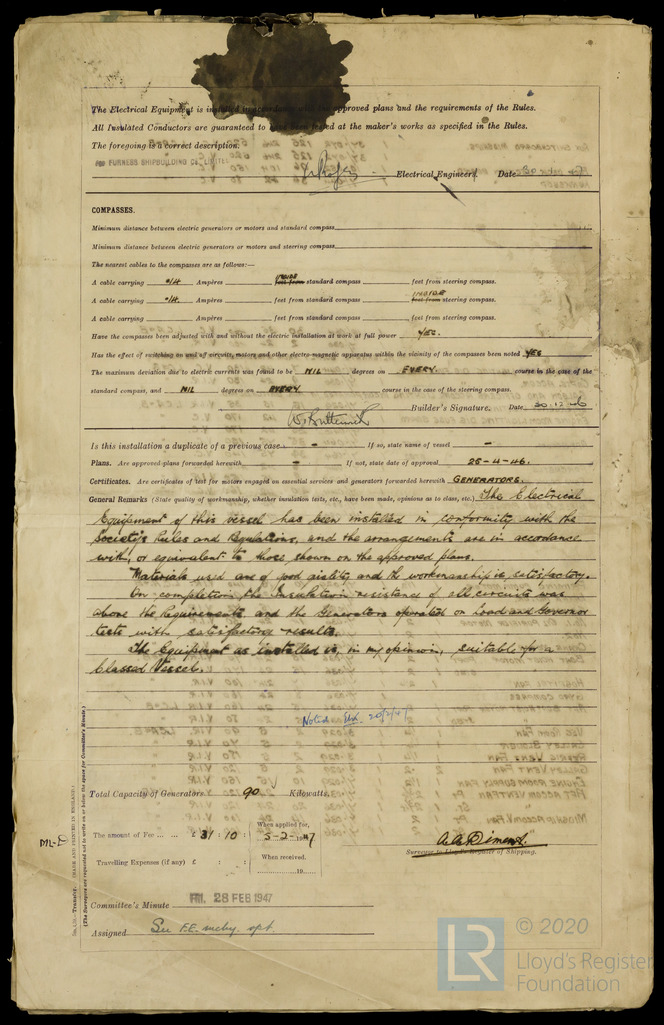 The Electrical Equipment is installed in accordance with the approved plans and the requirements of the Rules.
All Insulated Conductors are guaranteed to have been tested at the maker's works as specified in the Rules.
The foregoing is a correct description.
FOR FURNESS SHIPBUILDING CO. LIMITED
Electrical Engineers. Date 30
COMPASSES.
Minimum distance between electric generators or motors and standard compass
Minimum distance between electric generators or motors and steering compass
The nearest cables to the compasses are as follows:—
A cable carrying .14 Ampères INSIDE feet from standard compass feet from steering compass.
A cable carrying .14 Ampères feet from standard compass INSIDE feet from steering compass.
A cable carrying Ampères feet from standard compass feet from steering compass.
Have the compasses been adjusted with and without the electric installation at work at full power YES.
Has the effect of switching on and off circuits, motors and other electro-magnetic apparatus within the vicinity of the compasses been noted YES
The maximum deviation due to electric currents was found to be NIL degrees on EVERY. course in the case of the
standard compass, and NIL degrees on EVERY course in the case of the steering compass.
Builder's Signature. Date 30.12.46
Is this installation a duplicate of a previous case - If so, state name of vessel -
Plans. Are approved plans forwarded herewith - If not, state date of approval 25-4-46.
Certificates. Are certificates of test for motors engaged on essential services and generators forwarded herewith GENERATORS.
General Remarks (State quality of workmanship, whether insulation tests, etc., have been made, opinions as to class, etc.) The Electrical
Equipment of this vessel has been installed in conformity with the
Society's Rules and Regulations, and the arrangements are in accordance
with, or equivalent to those shown on the approved plans.
Materials used are of good quality and the workmanship is satisfactory.
On completion the Insulation resistance of all circuits was
above the Requirements and the Generators operated on Load and Governor
tests with satisfactory results.
The Equipment as installed is, in my opinion, suitable for a
Classed Vessel.
Noted 20/2/47
Total Capacity of Generators 90 Kilowatts.
The amount of Fee ... ... £ 31 : 10 : When applied for, 5-2-1947
Travelling Expenses (if any) £ : : When received, 19
A. A. Diment.
Surveyor to Lloyd's Register of Shipping.
Committee's Minute FRI. 28 FEB 1947
Assigned See F.E. mchy. rpt.
(MADE AND PRINTED IN ENGLAND.)
(The Surveyors are requested not to write on or below the space for Committee's Minute.)
© 2020
LR
Lloyd's Register
Foundation